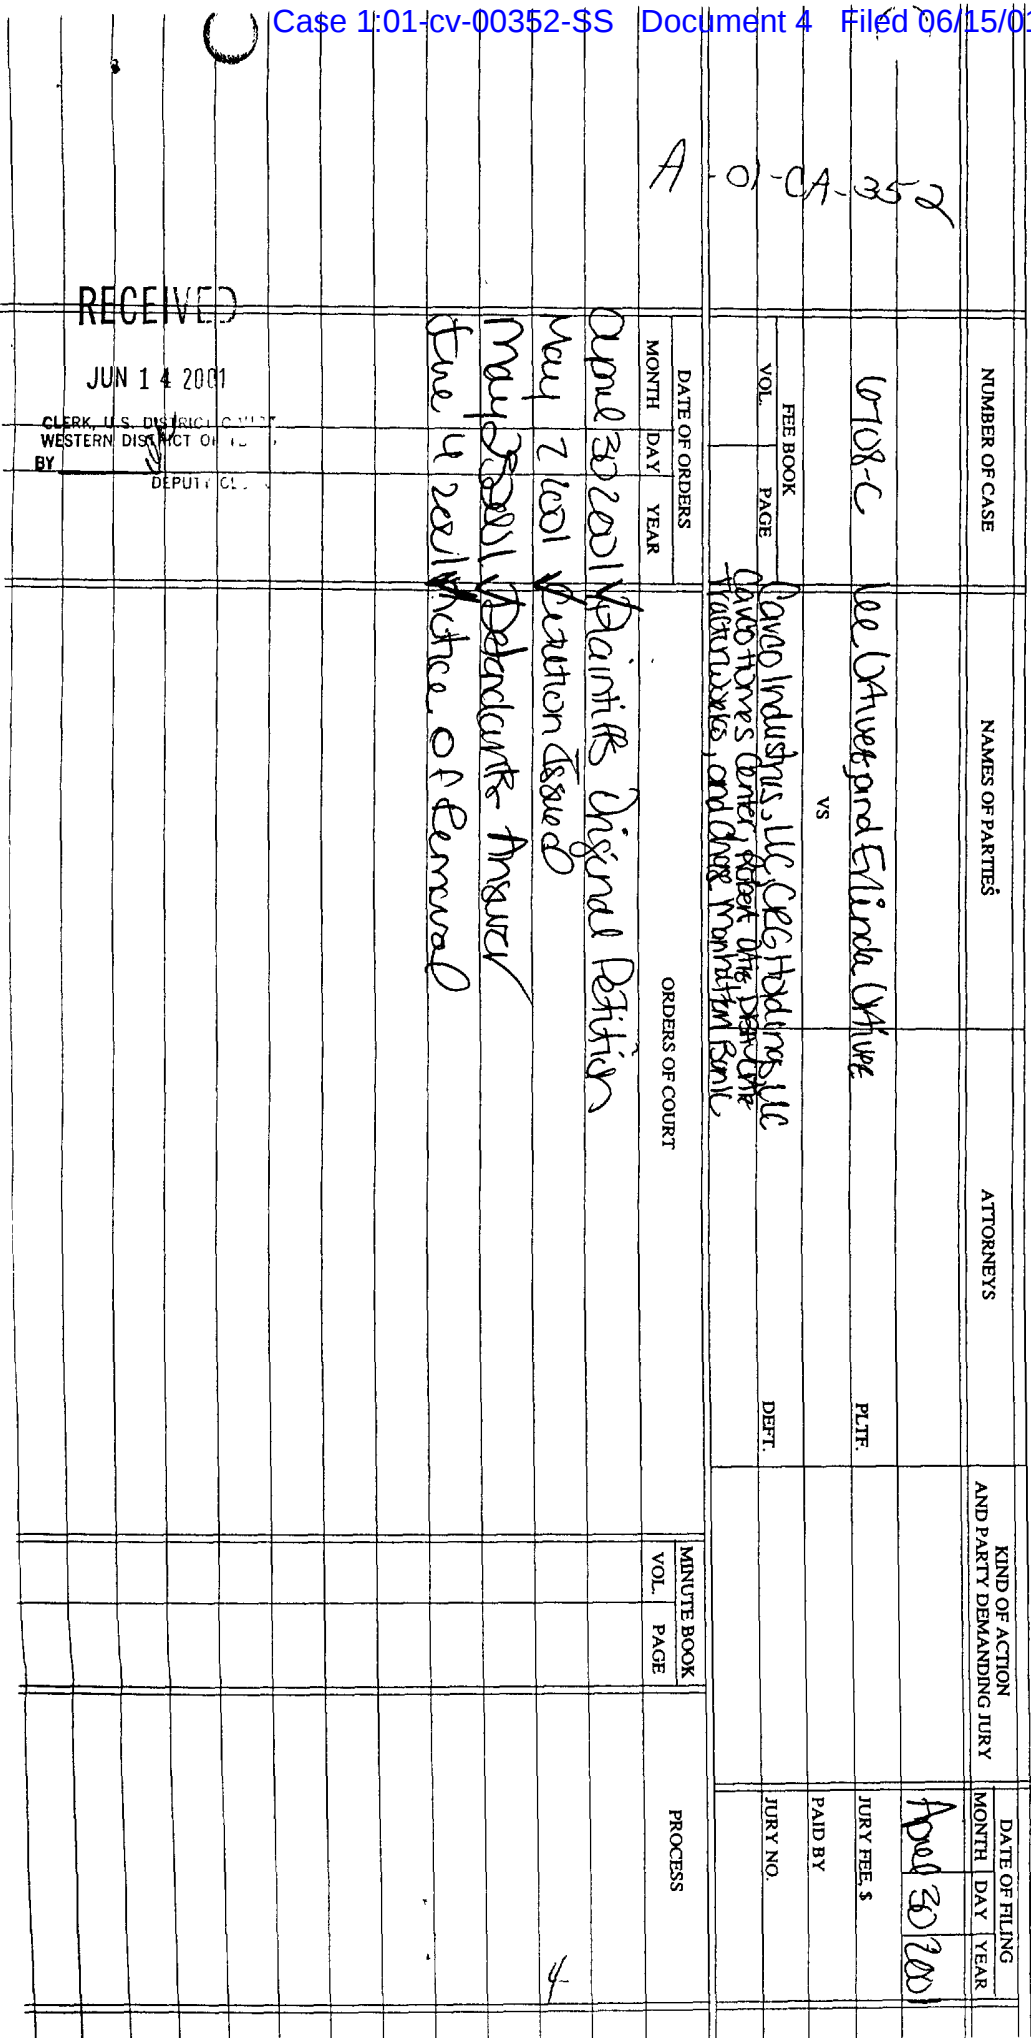 Case 1:01-cv-00352-SS Document 4 Filed 06/15/01
A-01-CA-352
NUMBER OF CASE
NAMES OF PARTIES
ATTORNEYS
KIND OF ACTION
AND PARTY DEMANDING JURY
DATE OF FILING
MONTH DAY YEAR
April 30 2001
6708-C
Lee and Erlinda
PLTF.
JURY FEE, $
VS
PAID BY
FEE BOOK
VOL. PAGE
Cavco Industries, LLC, CRG Holdings, LLC
DEFT.
JURY NO.
Cavco Homes Center, Robert
and Chase Manhattan Bank
DATE OF ORDERS
MONTH DAY YEAR
ORDERS OF COURT
MINUTE BOOK
VOL. PAGE
PROCESS
April 30 2001 Plaintiffs Original Petition
May 7 2001 Citation Issued
May 2001 Defendants Answer
June 4 2001 Notice of Removal
4
RECEIVED
JUN 14 2001
CLERK, U.S. DISTRICT
WESTERN DISTRICT OF
BY
DEPUTY